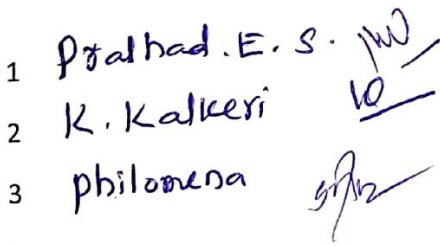 1 Pralhad. E. S.
2 K. Kalkeri
3 philomena